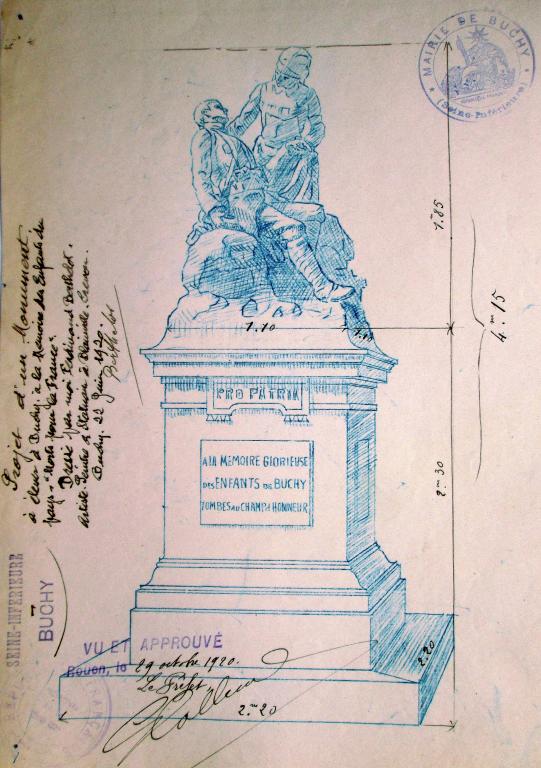 MAIRIE DE BUCHY
(Seine-Inférieure)
Projet d'un Monument
à élever à Buchy, à la Mémoire des Enfants du
pays "Morts pour la France".
Dressé par moi Ferdinand Berthelot,
Artiste Peintre & Statuaire à
Buchy, 22 Juin 1920.
Berthelot
1.m85
4.m15
1.10
1.10
PRO PATRIA
A LA MEMOIRE GLORIEUSE
DES ENFANTS DE BUCHY
TOMBES AU CHAMP D HONNEUR
2.m30
SEINE-INFERIEURE
BUCHY
VU ET APPROUVÉ
Rouen, le 29 octobre 1920.
Le Préfet
2.20
2.m20